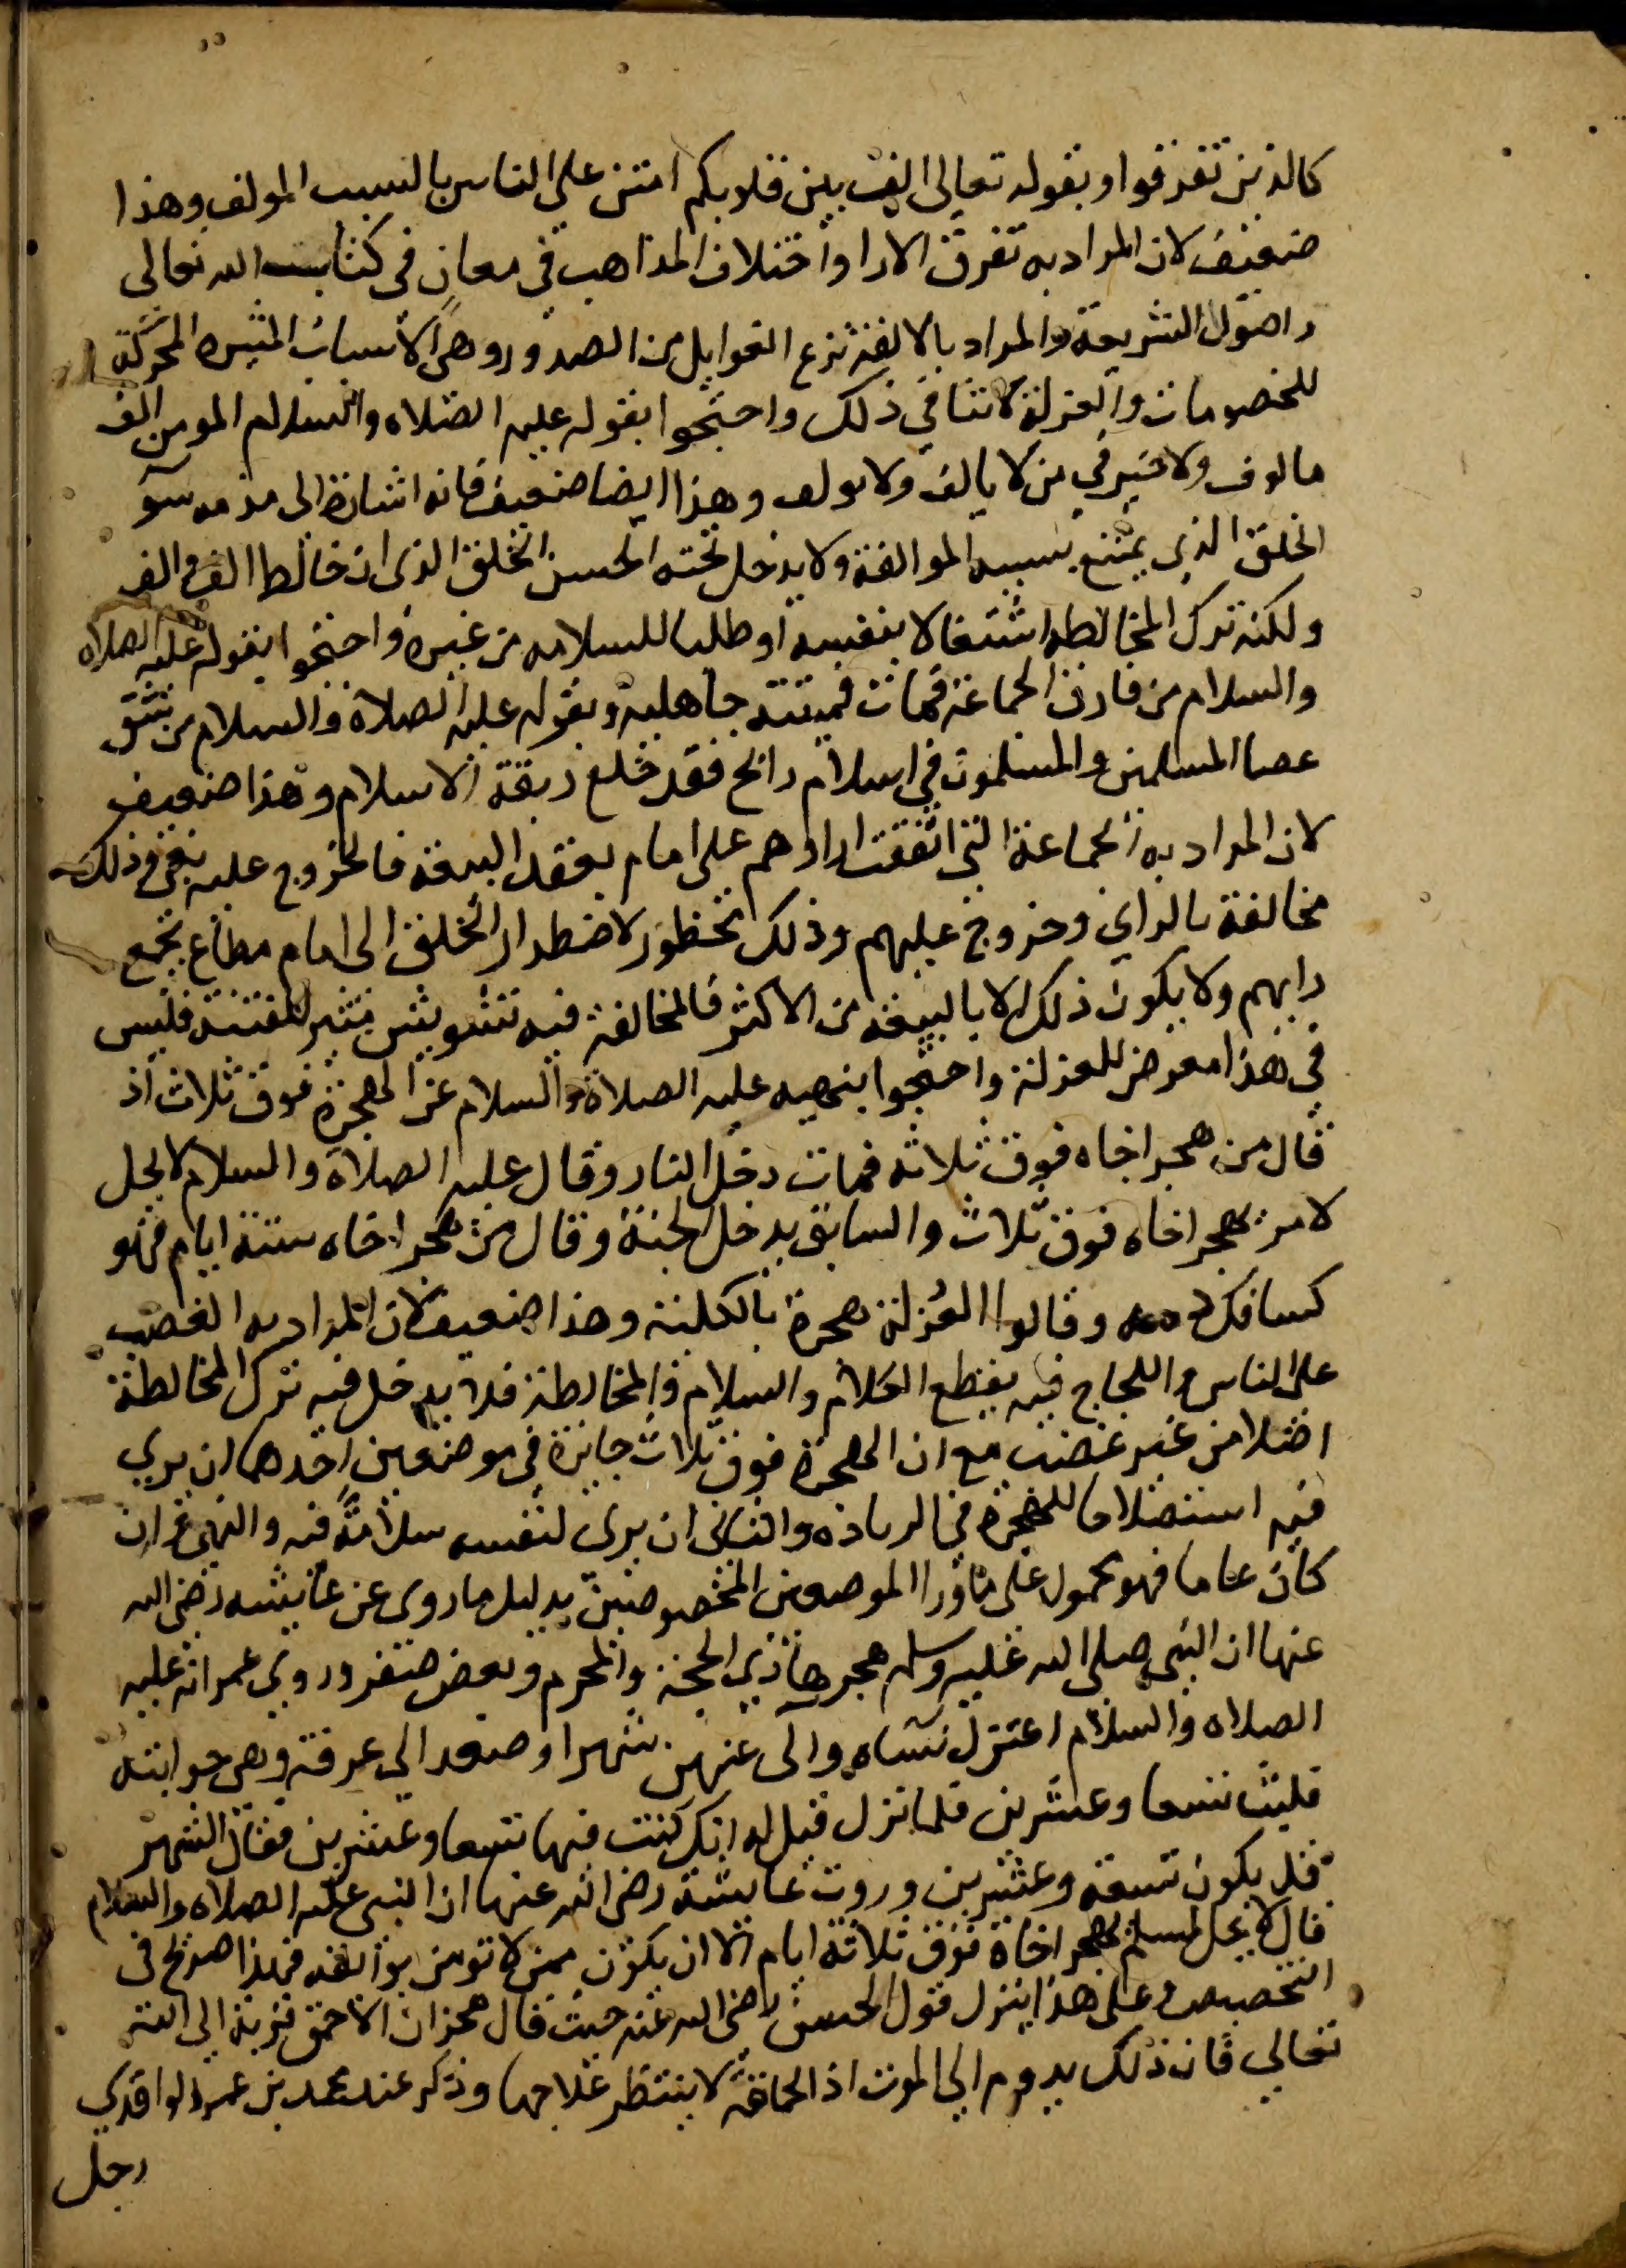 كالذين تفرقوا وبقوله تعالى الف بين قلوبكم امتن على الناس بالسبب المولف وهذا
ضعيف لان المراد به تفرق الارا واختلاف المذاهب في معان في كتاب الله تعالى
واصول الشريعة والمراد بالالفة نزع الغوايل من الصدور وهي الاسباب المثيره المحركة
للخصومات والعزلة لاتنافي ذلك واحتجوا بقوله عليه الصلاه والسلام المومن الف
مالوف ولا خير في من لا يالف ولا يولف وهذا ايضا ضعيف فانه اشارة الى مذمه سو
الخلق الذي يمتنع بسببه الموالفة ولا يدخل تحته الحسن الخلق الذي ان خالط الف والف
ولكنه ترك المخالطه اشتغالا بنفسه او طلبا للسلامه من غيره واحتجوا بقوله عليه الصلاه
والسلام من فارق الجماعة فمات فميتته جاهلية وبقوله عليه الصلاة والسلام من شق
عصا المسلمين والمسلمون في اسلام دامج فقد خلع ربقة الاسلام وهذا ضعيف
لان المراد به الجماعة التي اتفقت اراوهم على امام بعقد البيعة فالخروج عليه بغي وذلك
مخالفة بالراي وخروج عليهم وذلك محظور لاضطرار الخلق الى امام مطاع يجمع
رايهم ولا يكون ذلك الا بالبيعة من الاكثر فالمخالفة فيه تشويش مثير للفتنة فليس
في هذا معرض للعزلة واحتجوا بنهيه عليه الصلاة والسلام عن الهجرة فوق ثلاث اذ
قال من هجر اخاه فوق ثلاثه فمات دخل النار وقال عليه الصلاة والسلام لايحل
لامرء يهجر اخاه فوق ثلاث والسابق يدخل الجنة وقال من هجر اخاه ستة ايام فهو
كسافك دمه وقالوا العزلة هجرة بالكلية وهذا ضعيف لان المراد به الغضب
على الناس واللجاج فيه بقطع الكلام والسلام والمخالطة فلا يدخل فيه ترك المخالطة
اصلا من غير غضب مع ان الهجرة فوق ثلاث جايزة في موضعين احدهما ان يري
فيه استصلاحا للهجرة في الزياده والثاني ان يرى لنفسه سلامة فيه والنهي وان
كان عاما فهو محمول على ماورا الموضعين المخصوصين بدليل ما روى عن عايشه رضى الله
عنها ان النبي صلى الله عليه وسلم هجرها ذي الحجة والمحرم وبعض صفر وروي عمر انه عليه
الصلاه والسلام اعتزل نساه والى منهن شهرا وصعد الي غرفة وهي خزانته
فلبث تسعا وعشرين فلما نزل قيل له انك كنت فيها تسعا وعشرين فقال الشهر
قد يكون تسعة وعشرين وروت عايشة رضى الله عنها ان النبي عليه الصلاه والسلام
قال لا يحل لمسلم يهجر اخاة فوق ثلاثة ايام الا ان يكون ممن لا تومن بوايقه فهذا صريح في
التخصيص وعلى هذا ينزل قول الحسن رضى الله عنه حيث قال هجران الاحمق قربة الى الله
تعالي فان ذلك يدوم الى الموت اذ الحماقة لا ينتظر علاجها وذكر عند محمد بن عمر الواقدي
رجل